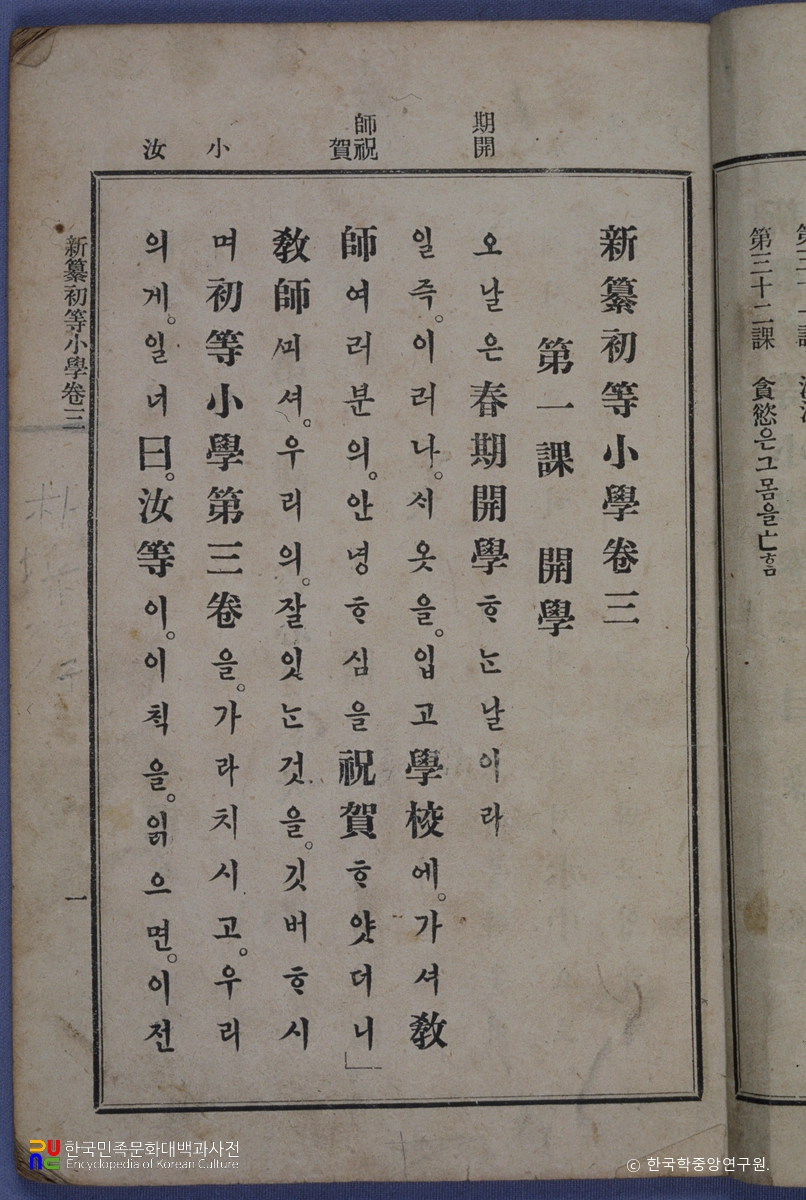 第三十二課 貪慾은그몸을亡ᄒᆞᆷ
期開
師祝
賀
小
汝
新纂初等小學卷三
第一課 開學
오날은春期開學ᄒᆞᄂᆞᆫ날이라
일즉。이러나。서옷을。입고學校에。가셔敎
師여러분의。안녕ᄒᆞ심을祝賀ᄒᆞ얏더니」
敎師ᄭᅴ셔。우리의。잘잇ᄂᆞᆫ것을。깃버ᄒᆞ시
며初等小學第三卷을。가라치시고。우리
의게。일너曰。汝等이。이ᄎᆡᆨ을。읽으면。이전
新纂初等小學卷三
一
한국민족문화대백과사전
Encyclopedia of Korean Culture
© 한국학중앙연구원